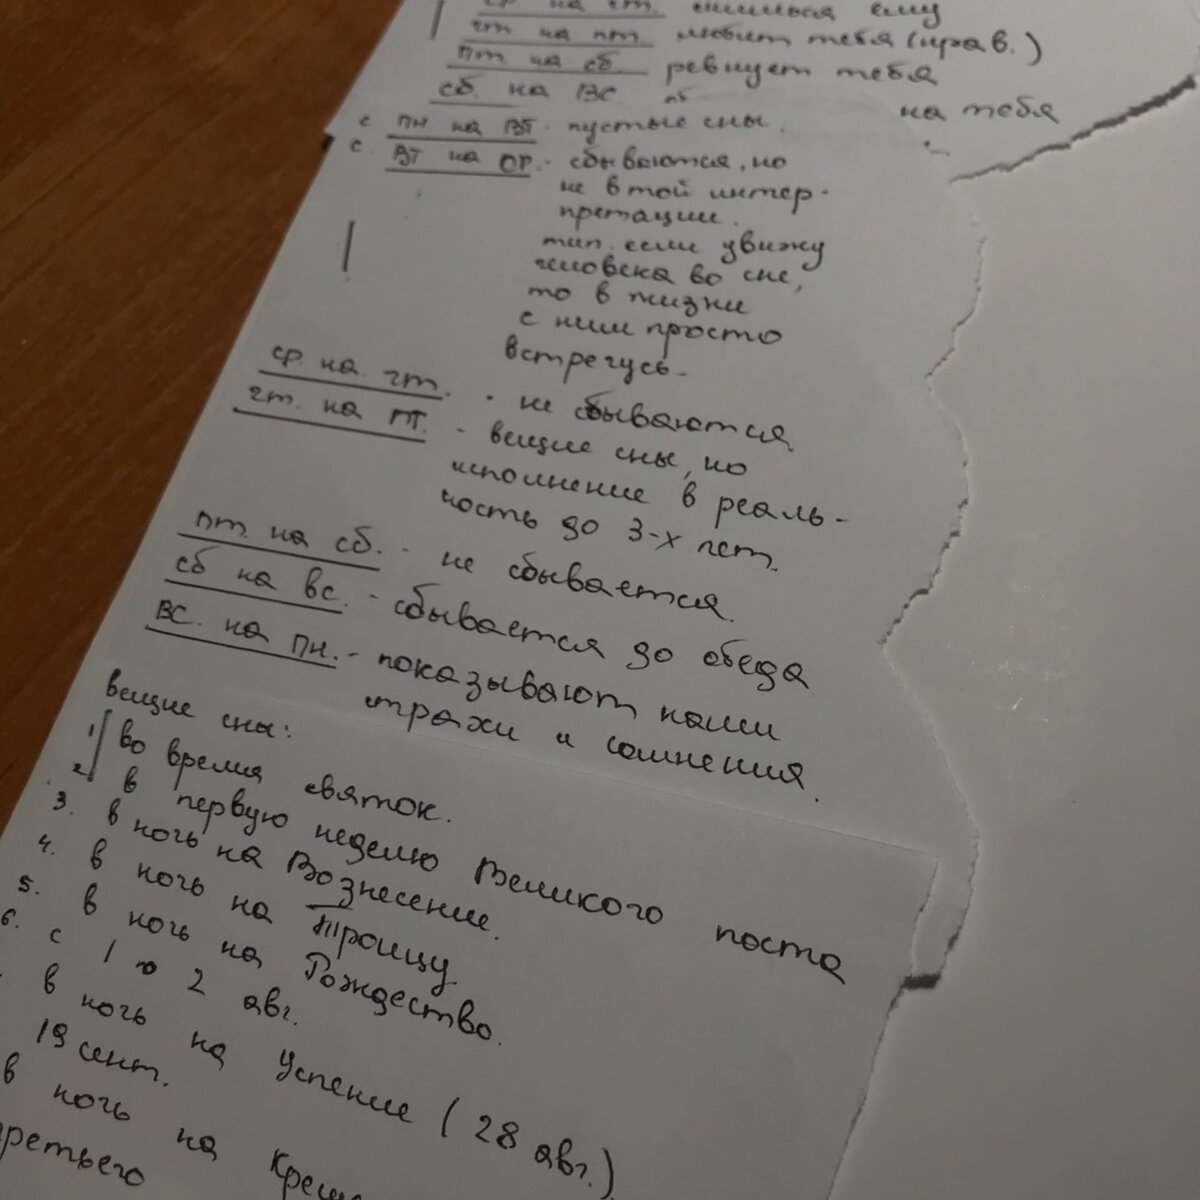 ср на чт. снишься ему
чт на пт. любит тебя (нрав.)
пт на сб. ревнует тебя
сб. на ВС на тебя
с пн на ВТ - пустые сны.
с. ВТ на СР. - сбываются, но
не в той интер-
претации.
тип. если увижу
человека во сне,
то в жизни
с ним просто
встречусь.
ср. на чт. - не сбываются
чт. на ПТ. - вещие сны, но
исполнение в реаль-
ность до 3-х лет.
пт. на сб. - не сбывается.
сб на вс. - сбывается до обеда
ВС. на ПН. - показывают наши
страхи и сомнения.
вещие сны:
1 во время святок.
2 в первую неделю Великого поста
3. в ночь на Вознесение.
4. в ночь на Троицу
5. в ночь на Рождество.
6. с 1 по 2 авг.
в ночь на Успение (28 авг.)
19 сент.
в ночь на Креще
третьего